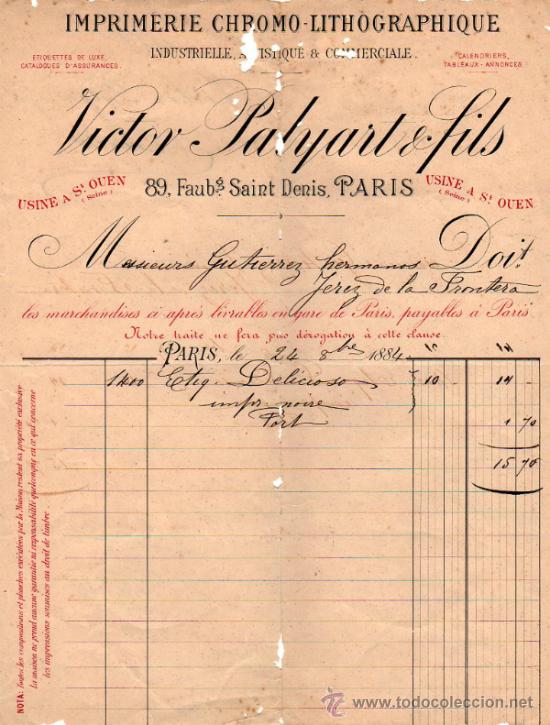 IMPRIMERIE CHROMO-LITHOGRAPHIQUE
INDUSTRIELLE, ARTISTIQUE & COMMERCIALE.
ETIQUETTES DE LUXE,
CATALOGUES D'ASSURANCES.
CALENDRIERS,
TABLEAUX-ANNONCES
Victor Palyart & fils
89, Faubg Saint Denis, PARIS
USINE A St OUEN
(Seine)
USINE A St OUEN
(Seine)
Messieurs Gutierrez hermanos Doit
Jerez de la Frontera
les marchandises ci après livrables en gare de Paris, payables à Paris
Notre traite ne fera pas dérogation à cette clause.
PARIS, le 24 8bre 1884
1400 Etiq. Delicioso 10 - 14 -
impr. noire
Port 1 70
15 70
NOTA: Toutes les compositions et planches exécutées par la Maison, restent sa propriété exclusive
La maison ne prend aucune garantie ni responsabilité quelconque en ce qui concerne
les impressions soumises au droit de timbre
todocoleccion.net